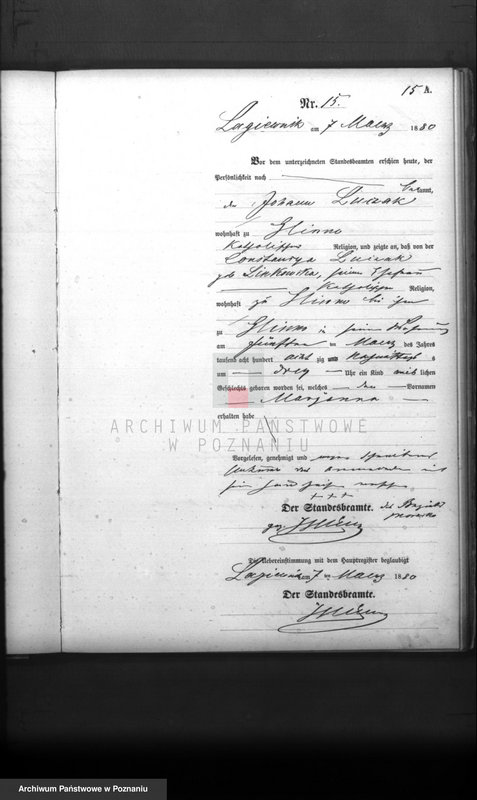 15 A.
Nr. 15.
Lagiewnik am 7 Maerz 1880
Vor dem unterzeichneten Standesbeamten erschien heute, der
Persönlichkeit nach
bekannt,
der Johann Luczak
wohnhaft zu Glinno
katholischer Religion, und zeigte an, daß von der
Constancya Luczak
geb. seiner Ehefrau
katholischer Religion,
wohnhaft zu Glinno bei ihm
zu Glinno in seiner Wohnung
am fünften ten Maerz des Jahres
tausend acht hundert acht zig und Nachmittags
um drey Uhr ein Kind weiblichen
Geschlechts geboren worden sei, welches den Vornamen
Marjanna
erhalten habe
ARCHIWUM PAŃSTWOWE
W POZNANIU
Vorgelesen, genehmigt und wegen Schreibens
+ + +
Der Standesbeamte.
Die Uebereinstimmung mit dem Hauptregister beglaubigt
Lagiewnik am 7 ten Maerz 1880
Der Standesbeamte.
Archiwum Państwowe w Poznaniu